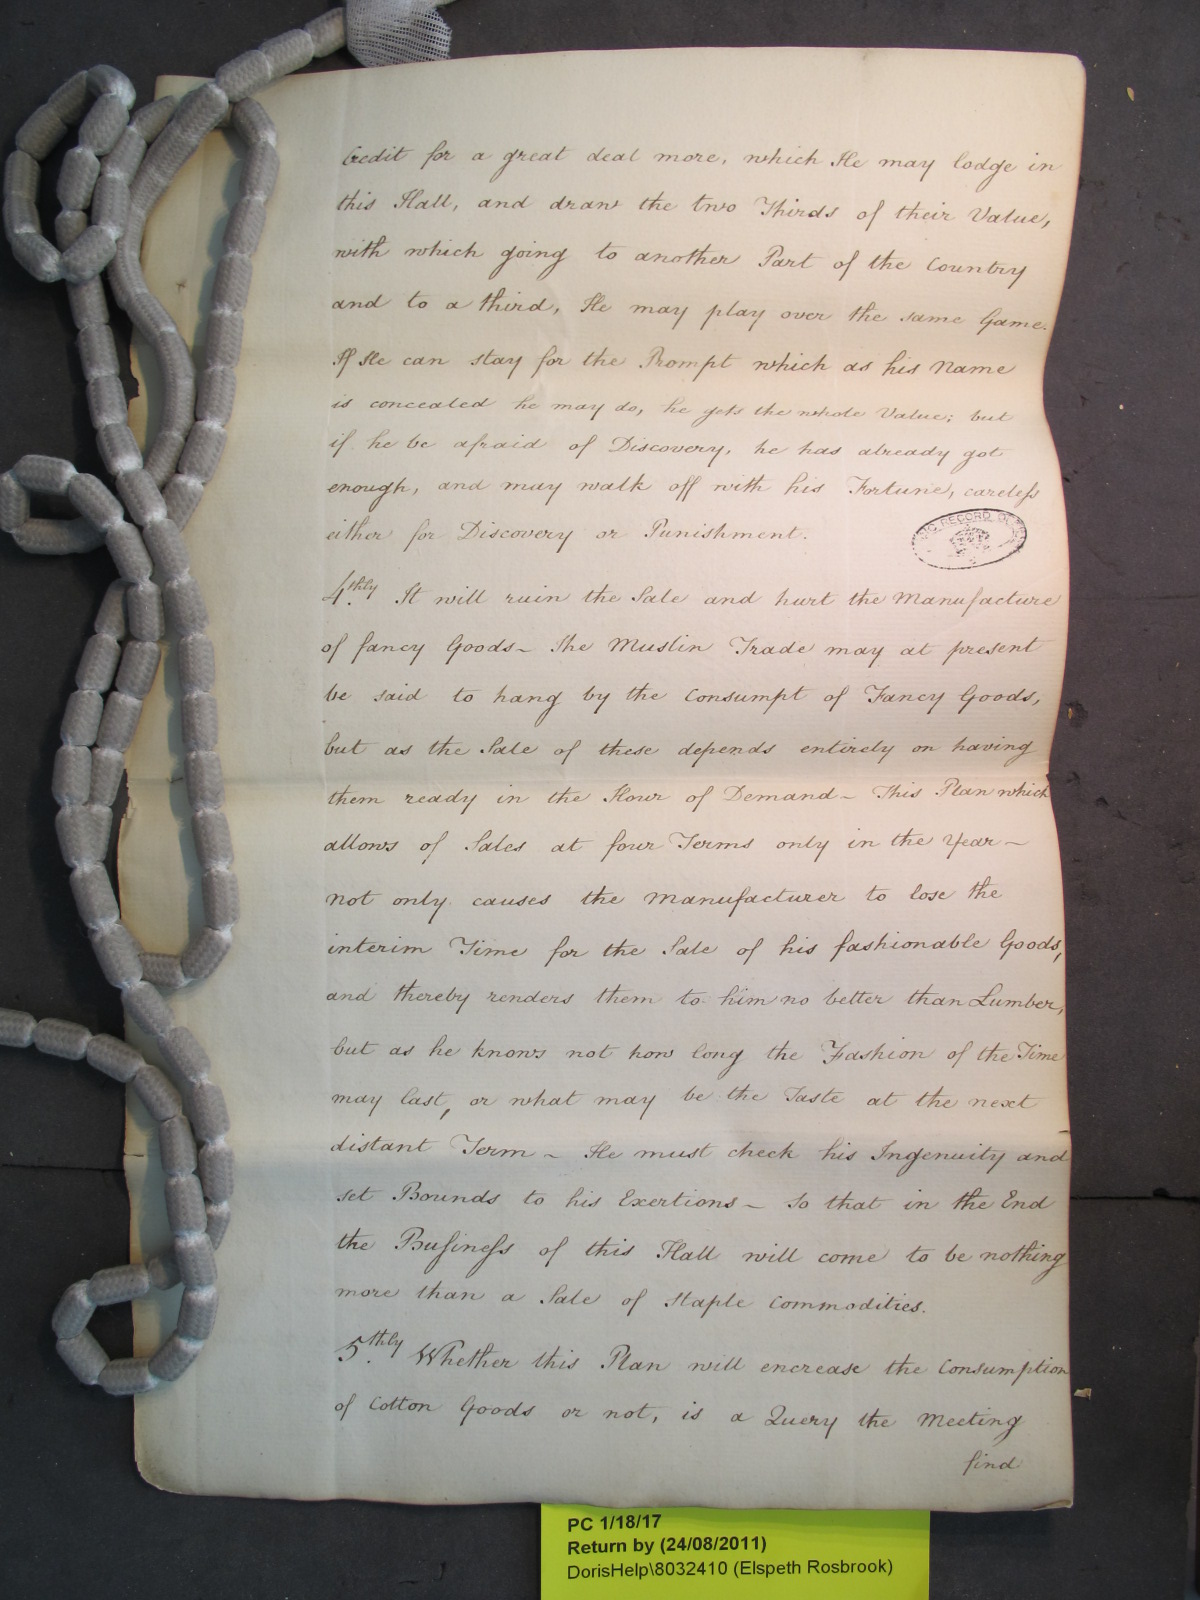 Credit for a great deal more, which He may lodge in
this Hall, and draw the two Thirds of their Value,
with which going to another Part of the Country
and to a third, He may play over the same Game.
If He can stay for the Prompt which as his Name
is concealed he may do, he gets the whole Value; but
if he be afraid of Discovery, he has already got
enough, and may walk off with his Fortune, careleſs
either for Discovery or Punishment.
4.thly It will ruin the Sale and hurt the Manufacture
of fancy Goods – The Muslin Trade may at present
be said to hang by the Consumpt of Fancy Goods,
but as the Sale of these depends entirely on having
them ready in the Hour of Demand – This Plan which
allows of Sales at four Terms only in the Year –
not only causes the Manufacturer to lose the
interim Time for the Sale of his fashionable Goods,
and thereby renders them to him no better than Lumber,
but as he knows not how long the Fashion of the Time
may last, or what may be the Taste at the next
distant Term – He must check his Ingenuity and
set Bounds to his Exertions – So that in the End
the Buſineſs of this Hall will come to be nothing
more than a Sale of Staple Commodities.
5.thly Whether this Plan will encrease the Consumption
of Cotton Goods or not, is a Query the Meeting
find
PC 1/18/17
Return by (24/08/2011)
DorisHelp\8032410 (Elspeth Rosbrook)